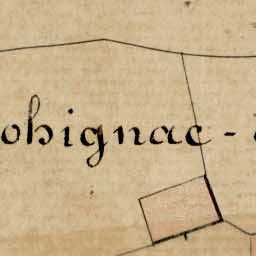 obignac -